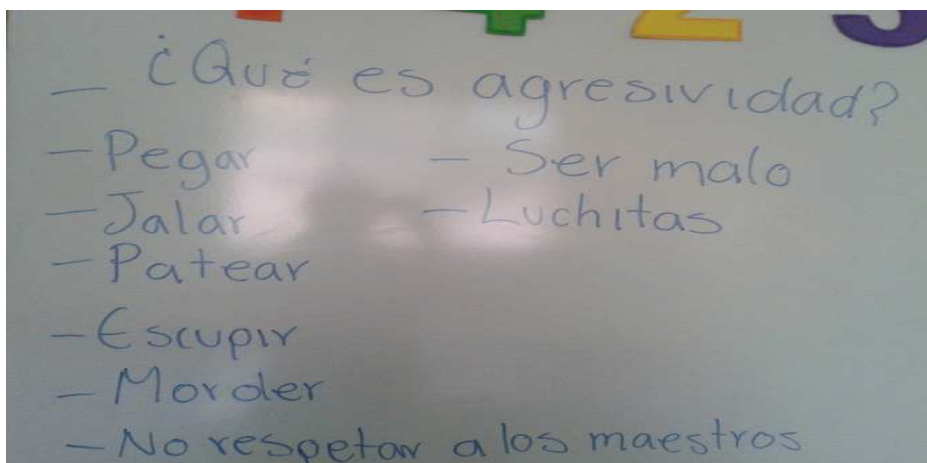 _ ¿Qué es agresividad?
- Pegar
- Jalar
- Patear
- Escupir
- Morder
- No respetar a los maestros
- Ser malo
- Luchitas